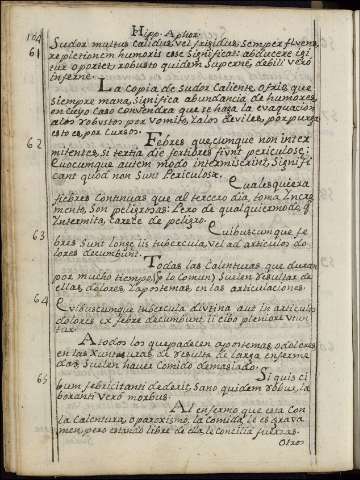 104 Hipp. Aphor.
61 Sudor multus calidus, vel frigidus semper fluens,
repletionem humoris esse significat: abducere igi
tur oportet, robusto quidem superne, debili verò
inferne.
La copia de sudor caliente, o frio, que
siempre mana, significa abundancia de humores,
en cuyo caso convendrà que se haga la evaquación
a los robustos por vomito, y a los deviles, por purga
esto es, por cursos.
62 Febres quecumque non inter
mitentes, si tertia die fortiores fiunt periculose;
Quocumque autem modo intermiserint, signifi
cant quod non sunt periculosæ.
Qualesquiera
fiebres continuas que al tercero dia, toma incre
mento, son peligrosas: Pero de qualquier modo, q
intermita, carece de peligro.
63 Quibuscumque fe
bres sunt longe iis tubercula, vel ad articulos do
lores decumbunt.
Todas las calenturas que duran
por mucho tiempo, lo comun, suelen resultar de
ellas, dolores, y apostemas en las articulaciones.
64 Quibuscumque tubercula diutina aut in articulos
dolores ex febre decumbunt ii cibo pleniore viun
tur.
A todos los que padecen apostemas, o dolores
en las xunturas, de resulta de larga enferme
dad, suelen haver comido demasiado.
65 Si quis ci
bum febricitanti dederit, sano quidem robur, la
boranti verò morbus.
Al enfermo que esta con
la calentura, o paroxismo, la comida le es grava
men, pero estando libre de ella le concilia fuerzas.
Otro